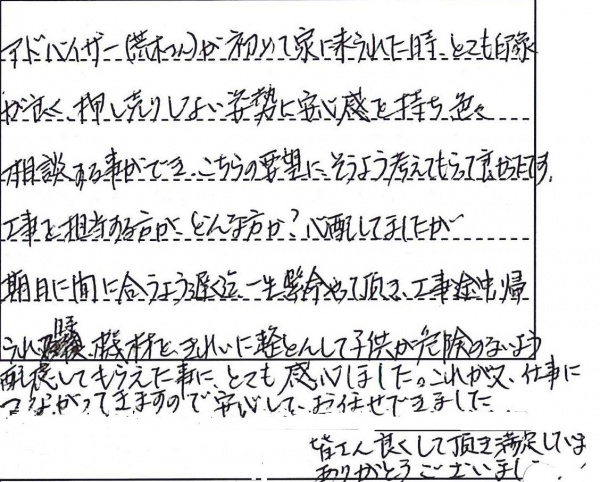 アドバイザー(荒木さん)が初めて家に来られた時、とても印象
が良く、押し売りしない姿勢に安心感を持ち色々
相談する事ができ、こちらの要望に、そうよう考えてもらって良かったです。
工事を担当する方が、どんな方か?心配してましたが
期日に間に合うよう遅く迄一生懸命やって頂き、工事途中、帰
られる時、機材を、きれいに整とんして子供が危険のないよう
配慮してもらえた事に、とても感心しました。これが又、仕事に
つながってきますので安心して、お任せできました
皆さん良くして頂き満足していま
ありがとうございまし